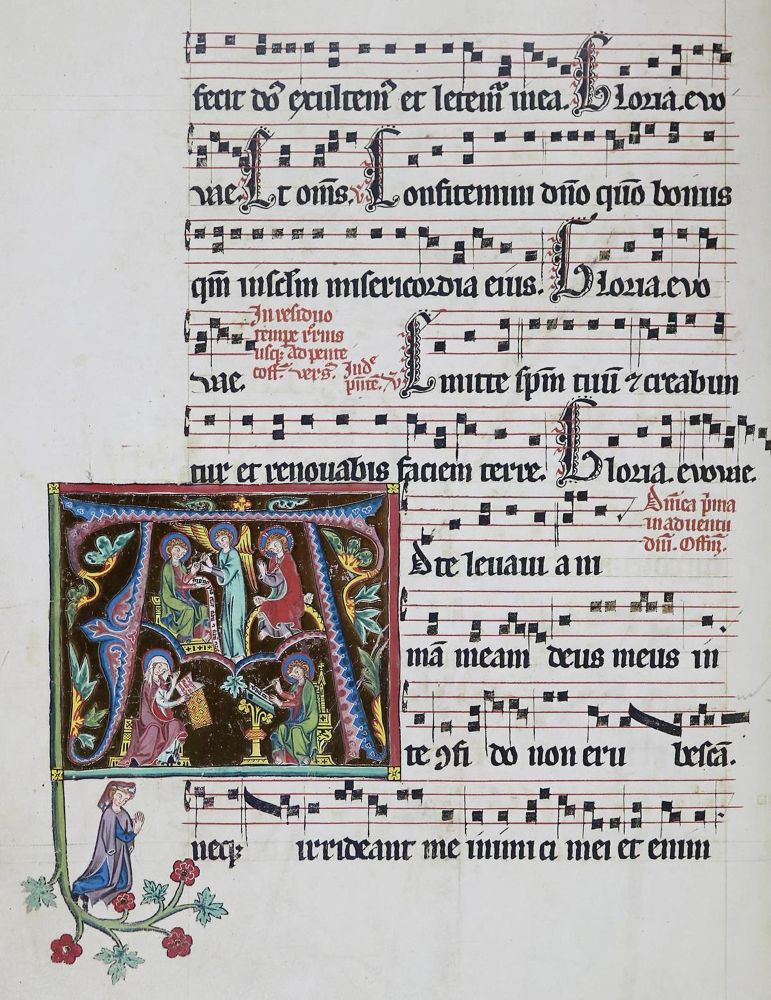 fecit dō exultem᷒ et letem̄ in ea. Gloria. evo
vae. Et om̄s. V̄ Confitemini dn̄o qūo bonus
qm̄ in sc̄lm misericordia eius. Gloria. evo
In residuo
temp̄e
usq; ad pente
cost̄. vers̄. Ind̄e
pn̄te. V̄
vae. Emitte sp̄m tuū ⁊ creabun
tur et renouabis faciem terre. Gloria. evovae.
Dn̄ica p̄ma
in aduentu
dn̄i. Off̄m.
Ad te leuaui ani
mā meam deus meus in
te ꝯfi do non eru bescā.
neq; irrideant me inimi ci mei et enim